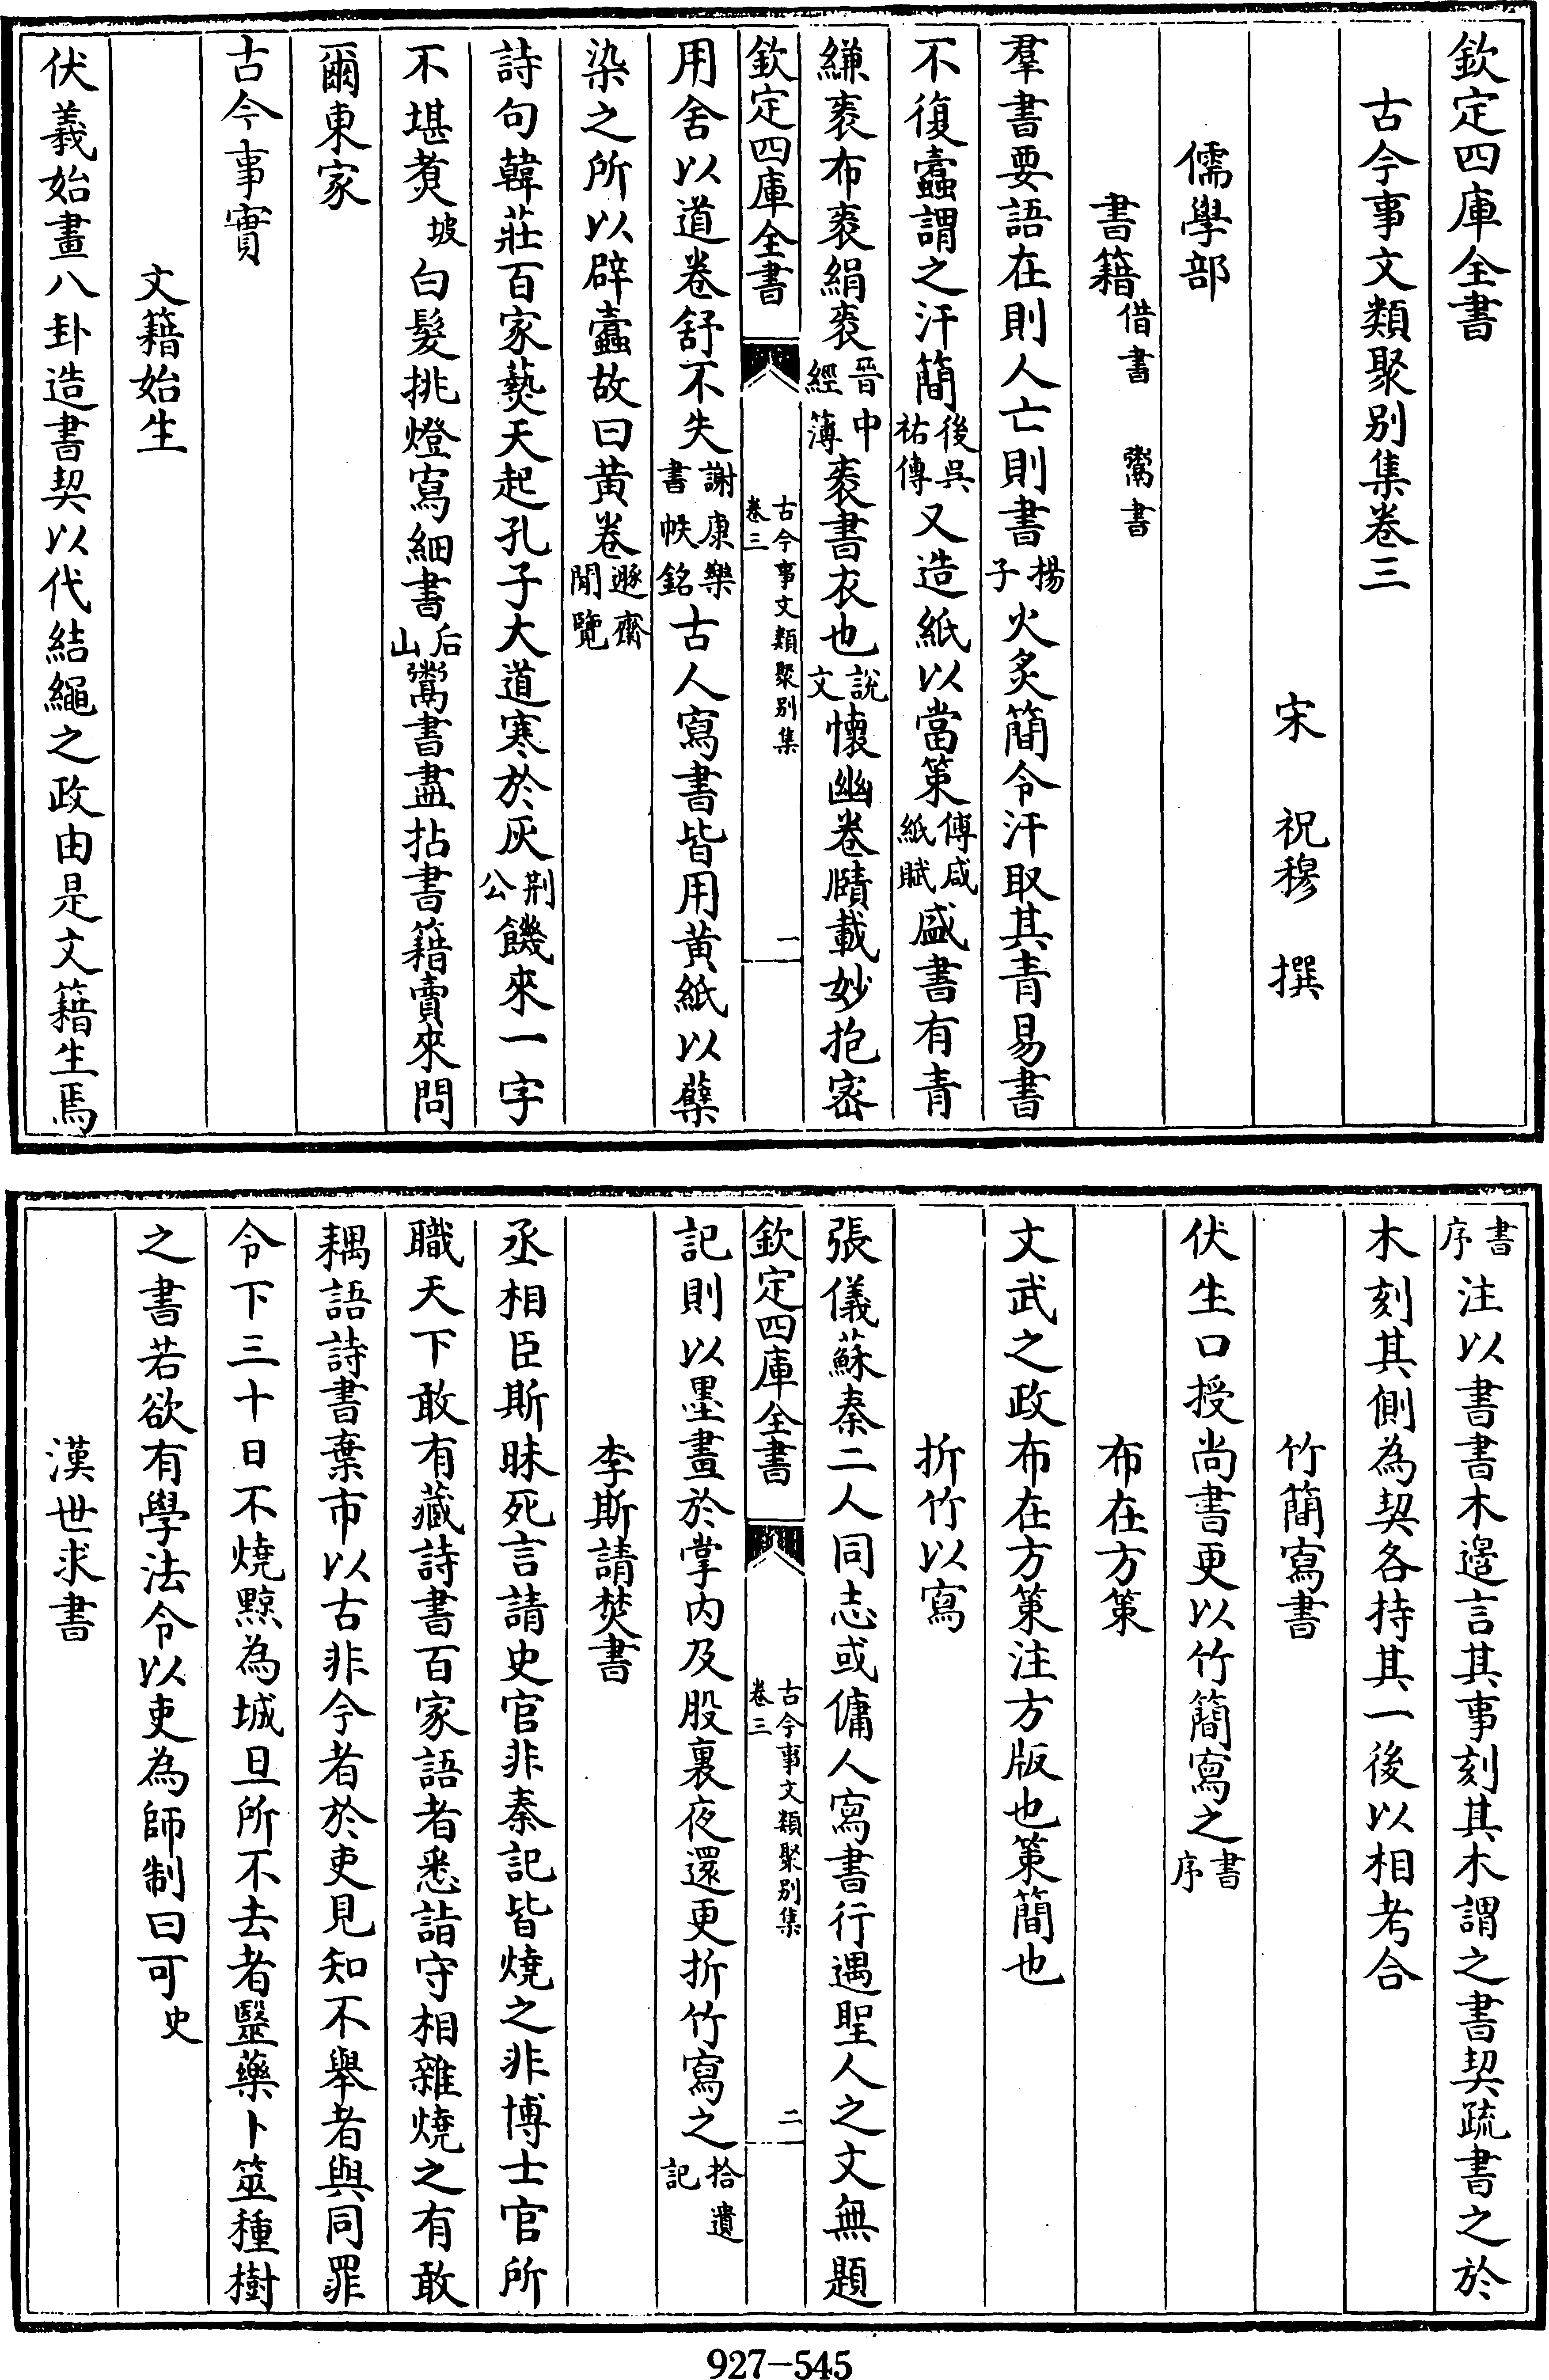 欽定四庫全書
古今事文類聚别集卷三
宋 祝穆 撰
儒學部
書籍借書 鬻書
羣書要語在則人亡則書揚子火炙簡令汗取其青易書
不復蠹謂之汗簡後吳祐傳又造紙以當策傅咸紙賦盛書有青
縑袠布袠絹袠晉中經簿袠書衣也説文懷幽卷賾載妙抱密
欽定四庫全書 古今事文類聚别集卷三 一
用舍以道卷舒不失謝康樂書帙銘古人寫書皆用黄紙以蘗
染之所以辟蠹故曰黄卷遯齋閒覽
詩句韓莊百家爇天起孔子大道寒於灰荆公饑來一字
不堪煑坡白髮挑燈寫細書后山鬻書盡拈書籍賣來問
爾東家
古今事實
文籍始生
伏羲始畫八卦造書契以代結繩之政由是文籍生焉
書序注以書書木邉言其事刻其木謂之書契疏書之於
木刻其側為契各持其一後以相考合
竹簡寫書
伏生口授尚書更以竹簡寫之書序
布在方策
文武之政布在方策注方版也策簡也
折竹以寫
張儀蘇秦二人同志或傭人寫書行遇聖人之文無題
欽定四庫全書 古今事文類聚别集卷三 二
記則以墨畫於掌内及股裏夜還更折竹寫之拾遺記
李斯請焚書
丞相臣斯昧死言請史官非秦記皆燒之非博士官所
職天下敢有藏詩書百家語者悉詣守相雜燒之有敢
耦語詩書棄市以古非今者於吏見知不舉者與同罪
令下三十日不燒黥為城旦所不去者毉藥卜筮種樹
之書若欲有學法令以吏為師制曰可史
漢世求書
927-545